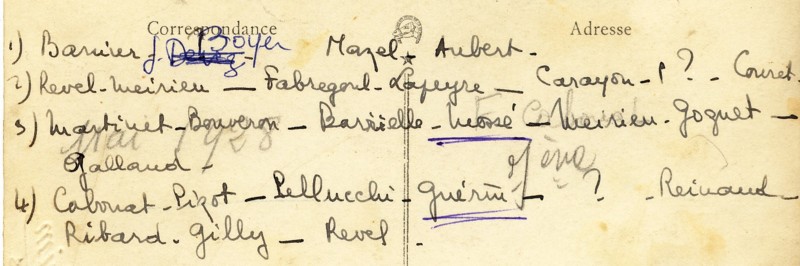 Correspondance Adresse
1) Barnier J. Boyer Mazel - Aubert -
2) Revel - Meirieu — Fabregoul - Lapeyre — Carayon - P ? - Couret -
3) Martinet - Bouveron — Barrielle - Mossé — Meirieu - Goguet —
Mai 1928
Galland -
4) Cabonat - Pizot — Pellucchi - Guérin — ? - Reinaud -
Ribard - Gilly — Revel -